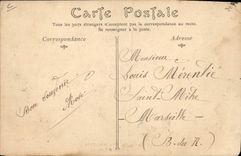 Carte Postale
Tous les pays étrangers n'acceptent pas la correspondance au recto.
Se renseigner à la poste.
Correspondance
Adresse
Bon Souvenir
Monsieur
Louis Mérentié
Saint Mitre
Marseille
(B. du R.)